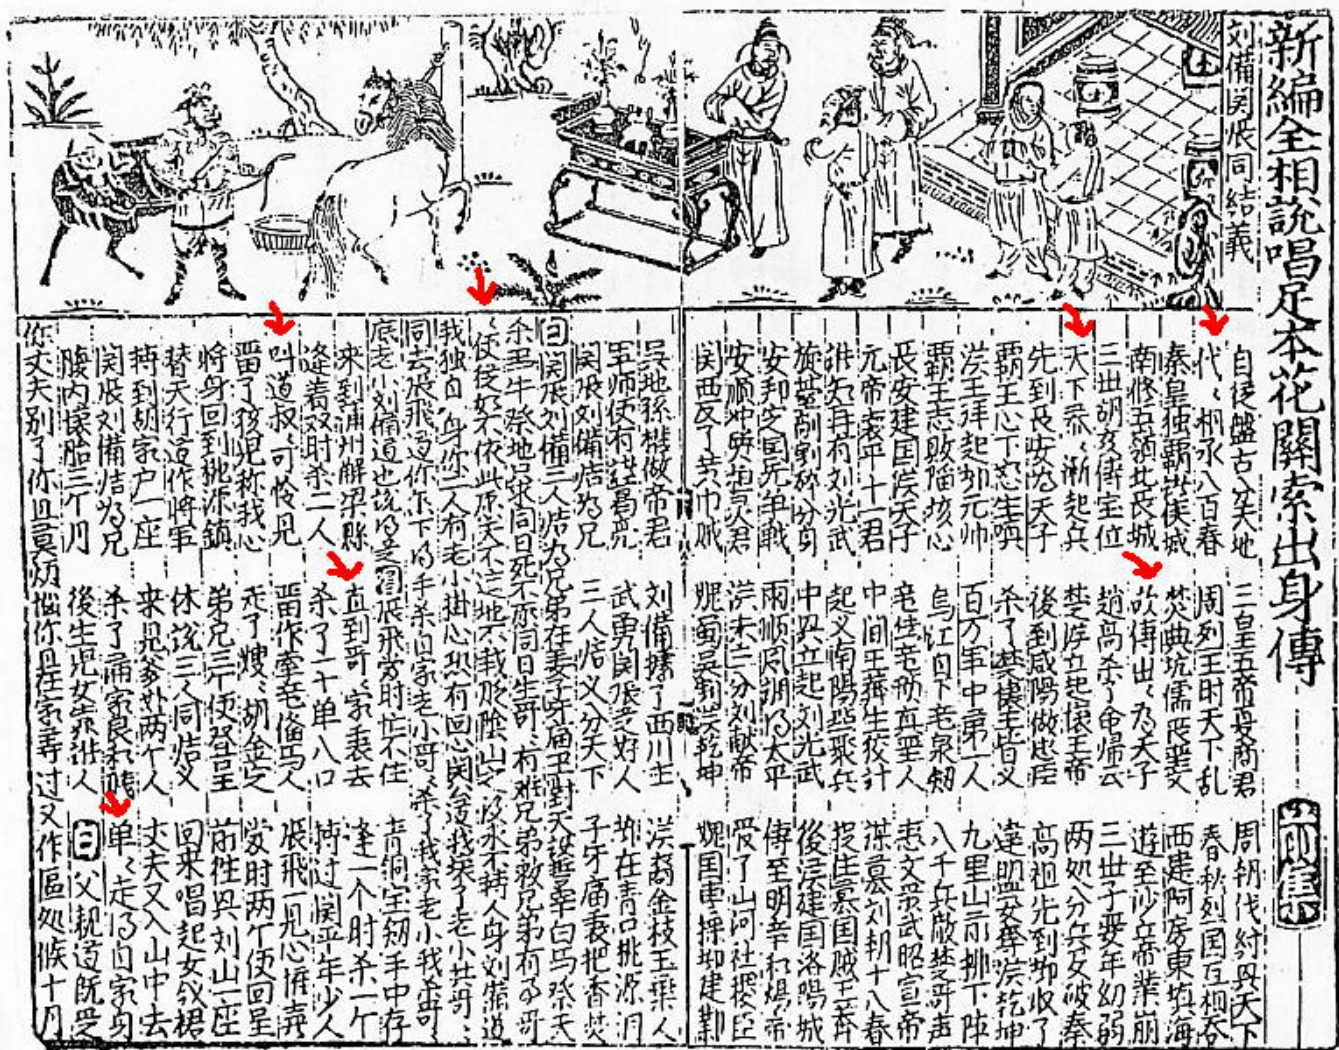 新編全相說唱足本花關索出身傳
前集
刘備関張同結義
自從盤古分天地 三皇五帝夏商君 周朝伐紂興天下
代〻相承八百春 周烈王时天下乱 春秋列国互相吞
秦皇独霸諸侯城 焚典坑儒喪聖文 西建阿房東填海
南修五嶺北長城 欲傳出〻为天子 遊至沙丘帝業崩
三世胡亥傳宝位 趙高杀了命歸云 三世子嬰年幼弱
天下悉〻漸起兵 楚将立起懷王帝 两处分兵去破秦
先到長安为天子 後到咸陽做忠臣 高祖先到却收了
霸王心下忽生嗔 杀了楚懷王背义 違盟要奪漢乾坤
漢王拜起郍元帅 百万軍中第一人 九里山前排下陣
霸王志敗陷垓心 烏江自下老泉剱 八千兵散楚哥声
長安建国漢天子 惠文景武昭宣帝
元帝哀平十一君 中间王莽生狡計 謀篡刘朝十八春
誰知再有刘光武 起义南陽聚兵 捉住篡国賊王莽
剮割碎分身 中兴立起刘光武 後漢建国洛陽城
安邦定国无争戰 雨順风調乃太平 傳至明章和殤帝
安順冲質桓灵君 漢末三分刘献帝 受了山河社稷臣
関西反了黃巾賊 魏蜀吴割漢乾坤 魏国曹操都建鄴
吴地孫權做帝君 刘備據了西川主 漢裔金枝玉葉人
軍师便有諸葛亮 武勇関張是好人 都在青口桃源洞
関張刘備结为兄 三人结义分天下 子牙庙裏把香焚
白 関張刘備三人结为兄弟在姜子牙庙里对天設誓宰白馬祭天
杀黑牛祭地只求同日死不願同日生哥〻有难兄弟救兄弟有事哥
〻便從如不依此願天不盖地不载貶陰山之後永不轉人身刘備道
我独自一身你二人有老小掛心恐有回心関公道我壊了老小共哥〻
同去張飛道你怎下的手杀自家老小哥〻杀了我家老小我杀哥〻
底老小刘備道也説得是 唱 張飛当时忙不住 青铜宝剱手中存
来到蒲州解梁縣 直到哥〻家裏去 逢一个时杀一个
逢着双时杀二人 杀了一十单八口 轉过関平年少人
叫道叔〻可怜見 留作牽老備马人 張飛一見心懽喜
留了孩児称我心 走了嫂〻胡金定 当时两个便回呈
将身回到桃源鎮 弟兄三个便登呈 前往兴刘山一座
替天行道作将軍 休説三人同结义 回来唱起女釵裙
轉到胡家户一座 来見爹外两个人 丈夫又入山中去
関張刘備结为兄 杀了満家良和賤 单〻走得自家身
腹内懐胎三个月 後生児女靠誰人 白 父親道既是
你丈夫别了你且莫煩惱你且在家等过又作區処候十月